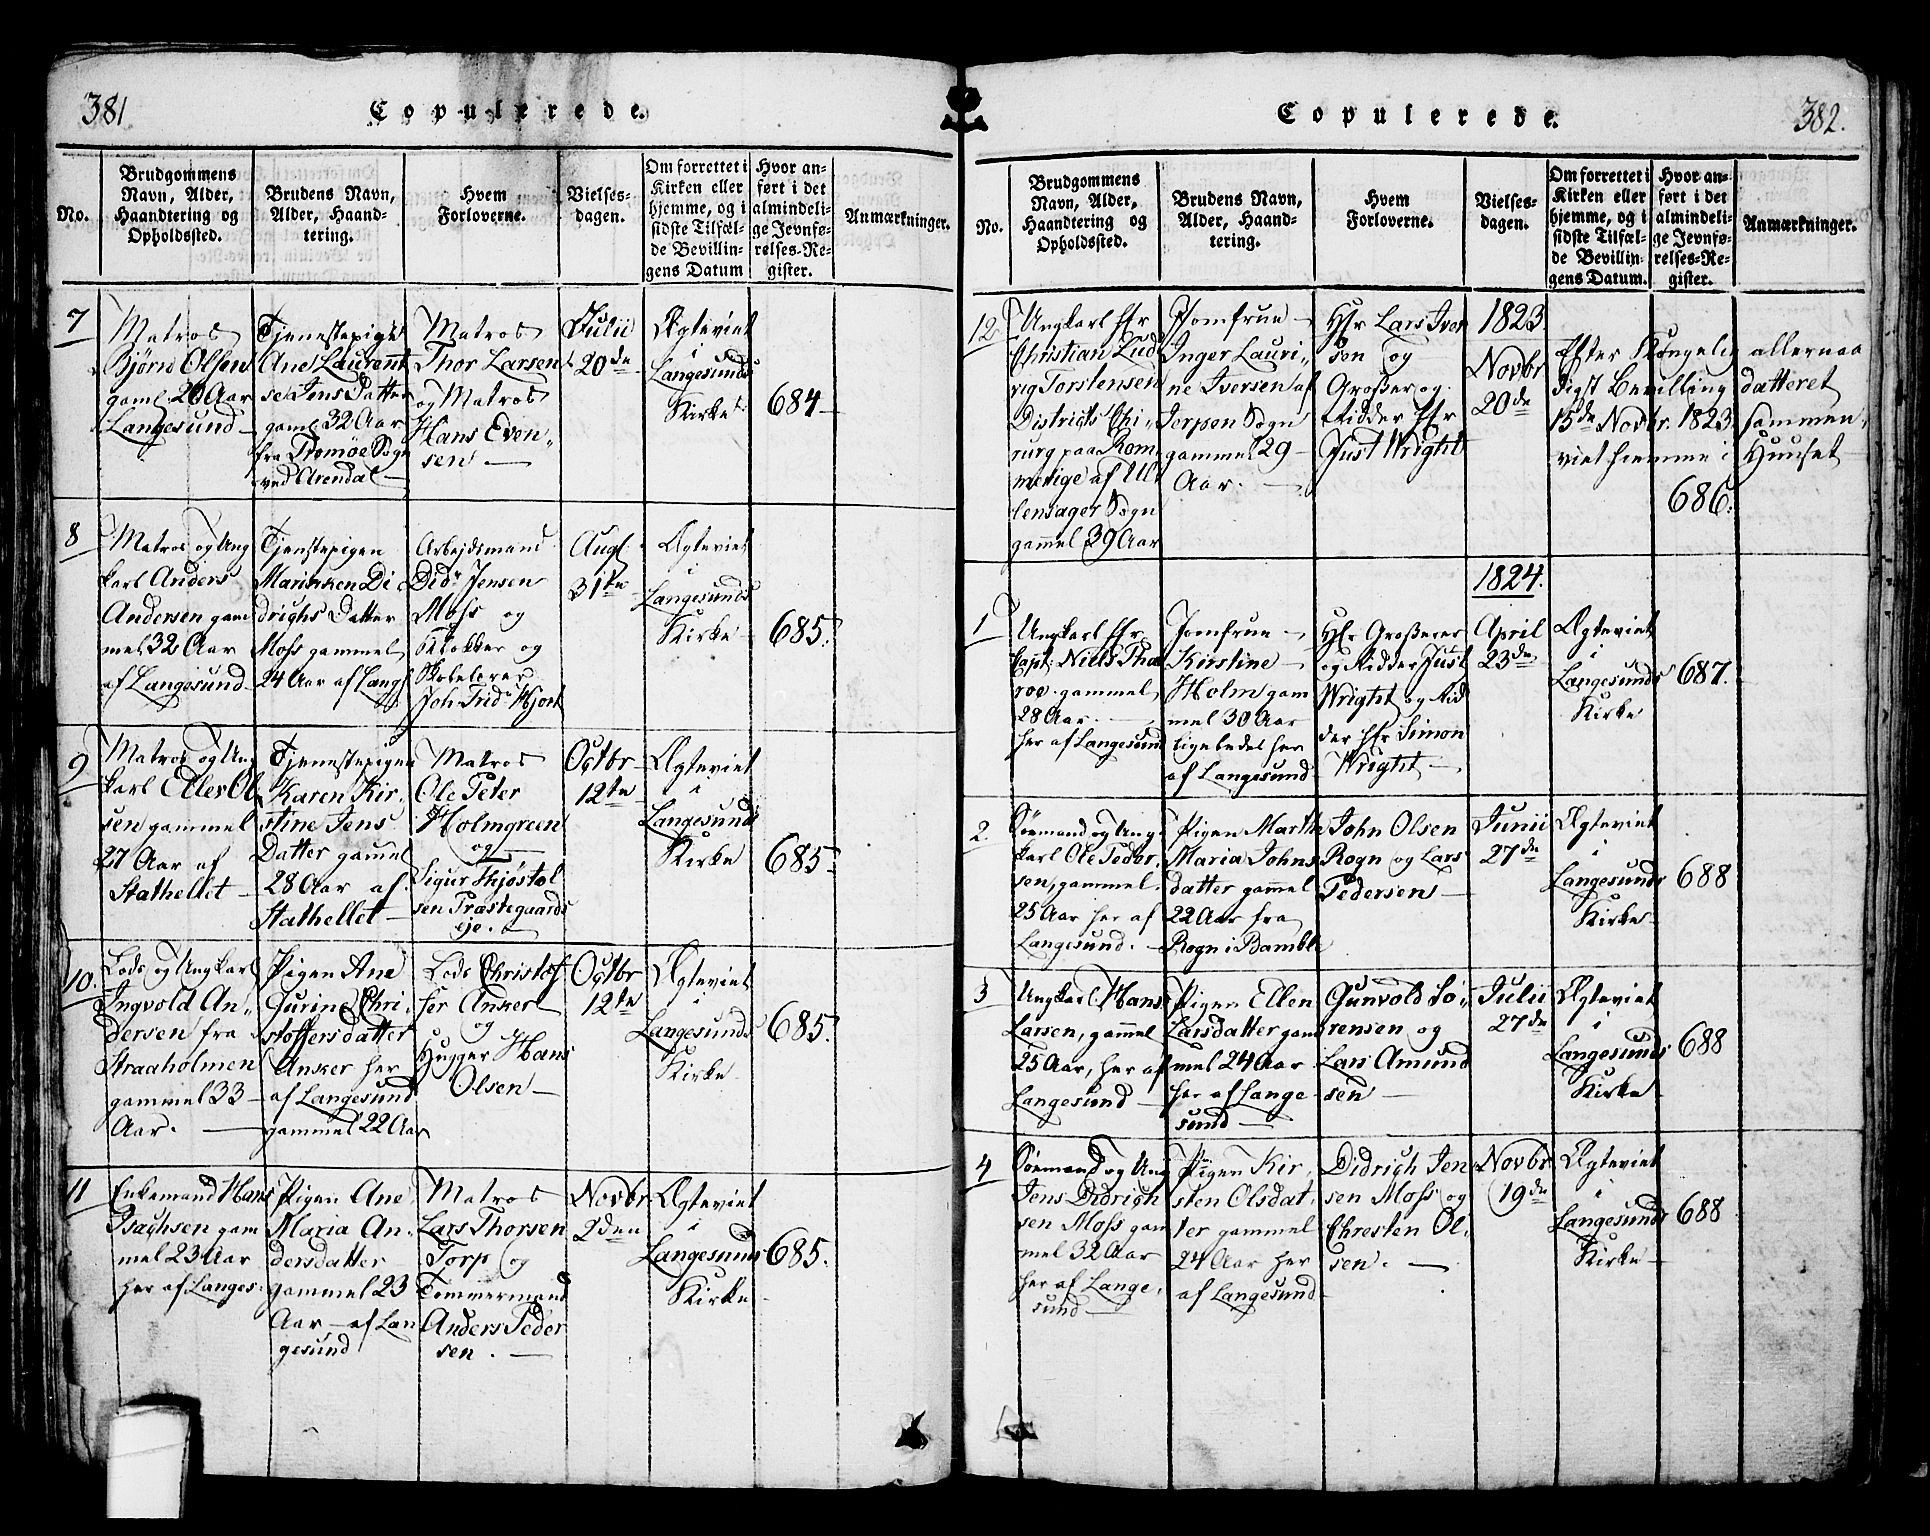 381
Copulerede.
No.
Brudgommens
Navn, Alder,
Haandtering og
Opholdssted.
Brudens Navn,
Alder, Haand-
tering.
Hvem
Forloverne.
Vielses-
dagen.
Om forrettet i
Kirken eller
hjemme, og i
sidste Tilfæl-
de Bevillin-
gens Datum
Hvor an-
ført i det
almindeli-
ge Jevnfø-
relses-Re-
gister.
Anmærkninger.
7
Matros
Bjørn Olsen
gaml. 26 Aar
Langesund
Tjenestepige
Ane Laurent
se Jens Datter
gaml 32 Aar
fra Tromøe Sogn
ved Arendal
Matros
Thor Larsen
og Matros
Hans Even-
sen
Julii
20de
Ægteviet
i
Langesunds
Kirke
684
8
Matros og Ung
karl Anders
Andersen gam
mel 32 Aar
af Langesund
Tjenstepigen
Marinken Di
drighs Datter
Moss gammel
24 Aar af Lang
Arbejdsmand
Didr Jensen
Moss og
Klokker og
Skolelærer
Joh: Frid: Hjort
Augl.
31te
Ægteviet
i
Langesunds
Kirke
685.
9
Matros og Ung
karl Elles Ol
sen gammel
27 Aar af
Stathellet
Tjenestepigen
Karen Kir-
stine Jens
Datter gamel
28 Aar af
Stathellet
Matros
Ole Peter
Holmgreen
og
Sigur Kjøstol
sen Præstegaards
eje.
Octbr
12te
Ægteviet
i
Langesunds
Kirke
685.
10.
Lods og Ungkarl
Ingvold An-
dersen fra
Straaholmen
gammel 33
Aar.
Pigen Ane
Gurine Chri-
stoffersdatter
Anker her
af Langesund
gammel 22 Aar
Lods Christof-
fer Anker
og
Hugger Hans
Olsen
Octbr
12te
Ægteviet
i
Langesunds
Kirke
685.
11
Enkemand Hans
Isachsen gam
mel 23 Aar
her af Langes.
Pigen Ane
Maria An-
dersdatter
gammel 23
Aar af Lan
gesund
Matros
Lars Thorsen
Torp og
Tømmermand
Anders Peder
sen.
Novbr
2den
Ægteviet
i
Langesunds
Kirke
685.
382.
Copulerede.
No.
Brudgommens
Navn, Alder,
Haandtering og
Opholdssted.
Brudens Navn,
Alder, Haand-
tering.
Hvem
Forloverne.
Vielses-
dagen.
Om forrettet i
Kirken eller
hjemme, og i
sidste Tilfæl-
de Bevillin-
gens Datum.
Hvor an-
ført i det
almindeli-
ge Jevnfø-
relses-Re-
gister.
Anmærkninger.
12
Ungkarl Hr
Christian Lud
vig Torstensen
Districts Chi-
rurg paa Rom
merige af Ul
lensager Sogn
gammel 39 Aar
Jomfrue
Inger Lauri-
ne Iversen af
Jerpen Sogn
gammel 29
Aar.
Hr Lars Iver
sen og
Grosser og
Ridder Hr
Just Wright
1823
Novbr
20de
Efter Kongelig allernaa
digst Bevilling datteret
15de Novbr. 1823 sammen-
viet hiemme i Huuset
686.
1824.
1
Ungkarl Hr
Capt: Niels Tha
roe. gammel
28 Aar.
her af Langesund
Jomfrue
Kirstine
Holm gam
mel 30 Aar
ligeledes her
af Langesund
Hr Grosserer
og Ridder Just
Wright og Rid
der Hr Simon
Wright
April
23de
Ægteviet
i
Langesunds
Kirke
687.
2.
Søemand og Ung
karl Ole Peder-
sen, gammel
25 Aar her af
Langesund.
Pigen Marthe
Maria Johns
datter gammel
22 Aar fra
Rogn i Bamble
John Olsen
Rogn og Lars
Pedersen
Junii
27de
Ægteviet
i
Langesunds
Kirke
688
3
Ungkarl Hans
Larsen, gammel
25 Aar, her af
Langesund
Pigen Ellen
Larsdatter gam
mel 24 Aar
her af Lange
sund
Gunvold Sø-
rensen og
Lars Amund
sen
Julii
27de
Ægteviet
i
Langesunds
Kirke
688
4
Søemand og Ung
Jens Didrigh
sen Moss gam
mel 32 Aar
her af Lange-
sund
Pigen Kir-
sten Olsdat-
ter gammel
24 Aar her
af Langesund
Didrich Jen
sen Moss og
Chresten Ol-
sen.
Novbr
19de
Ægteviet
i
Langesunds
Kirke
688